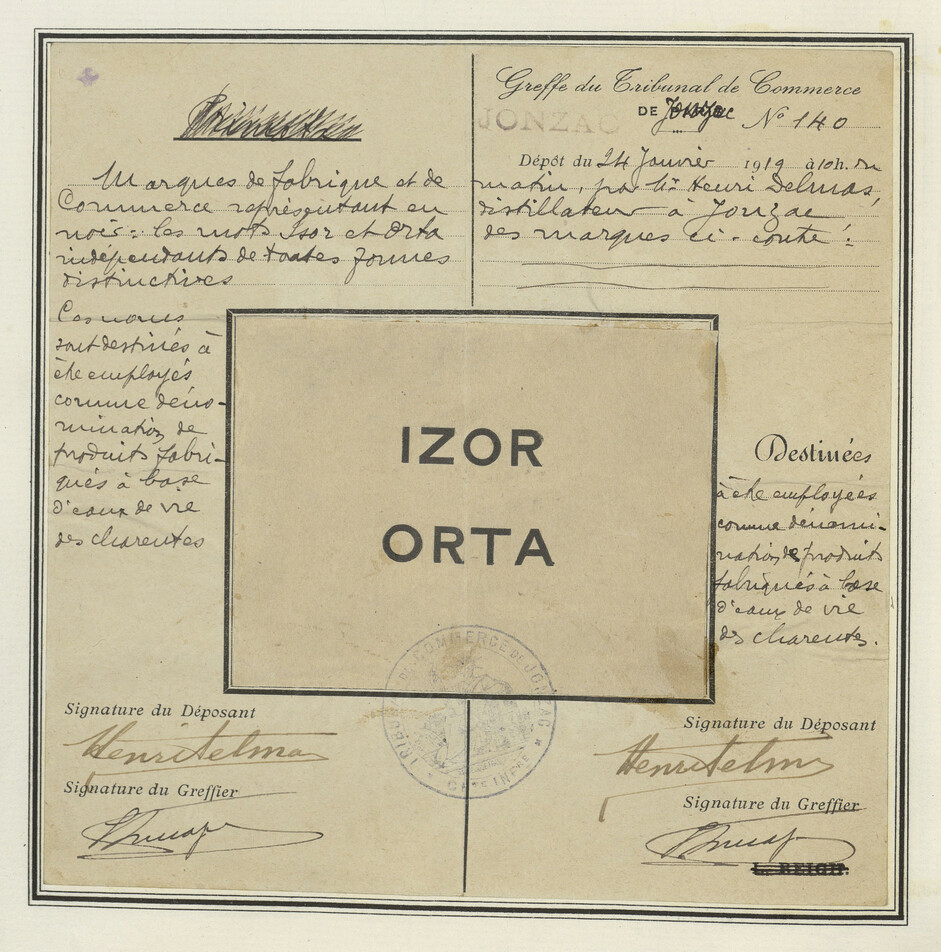 Marques de fabrique et de
Commerce représentant en
noir : les mots Isor et Orta
indépendants de toutes formes
distinctives
Ces noms
sont destinés à
être employés
comme déno-
mination de
produits fabri-
qués à base
d'eaux de vie
des charentes
Signature du Déposant
Henri Delmas
Signature du Greffier
Greffe du Tribunal de Commerce
DE Jonzac
JONZAC
Nº 140
Dépôt du 24 Janvier 1919 à 10h. du
matin, par Mr Henri Delmas,
distillateur à Jonzac
des marques ci-contre :
IZOR
ORTA
Destinées
à être employées
comme dénomi-
nation de produits
fabriqués à base
d'eaux de vie
des charentes.
TRIBUNAL DE COMMERCE DE JONZAC
CHTE INFRE
Signature du Déposant
Henri Delmas
Signature du Greffier